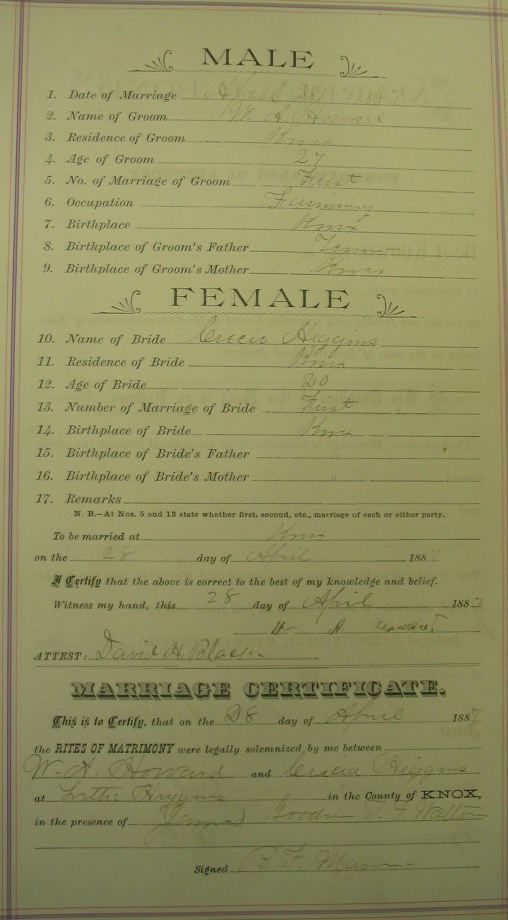 MALE
1. Date of Marriage April 28
2. Name of Groom W. A. Howard
3. Residence of Groom Knox
4. Age of Groom 27
5. No. of Marriage of Groom First
6. Occupation Farming
7. Birthplace Knox
8. Birthplace of Groom's Father
9. Birthplace of Groom's Mother Knox
FEMALE
10. Name of Bride Higgins
11. Residence of Bride Knox
12. Age of Bride 20
13. Number of Marriage of Bride First
14. Birthplace of Bride Knox
15. Birthplace of Bride's Father "
16. Birthplace of Bride's Mother "
17. Remarks
N. B.—At Nos. 5 and 13 state whether first, second, etc., marriage of each or either party.
To be married at Knox
on the 28 day of April 188
I Certify that the above is correct to the best of my knowledge and belief.
Witness my hand, this 28 day of April 1887
W A Howard
ATTEST: David H. Black
MARRIAGE CERTIFICATE.
This is to Certify, that on the 28 day of April 1887
the RITES OF MATRIMONY were legally solemnized by me between
W. A. Howard and Higgins
at Higgins in the County of KNOX,
in the presence of James Goodin
Signed B. F.